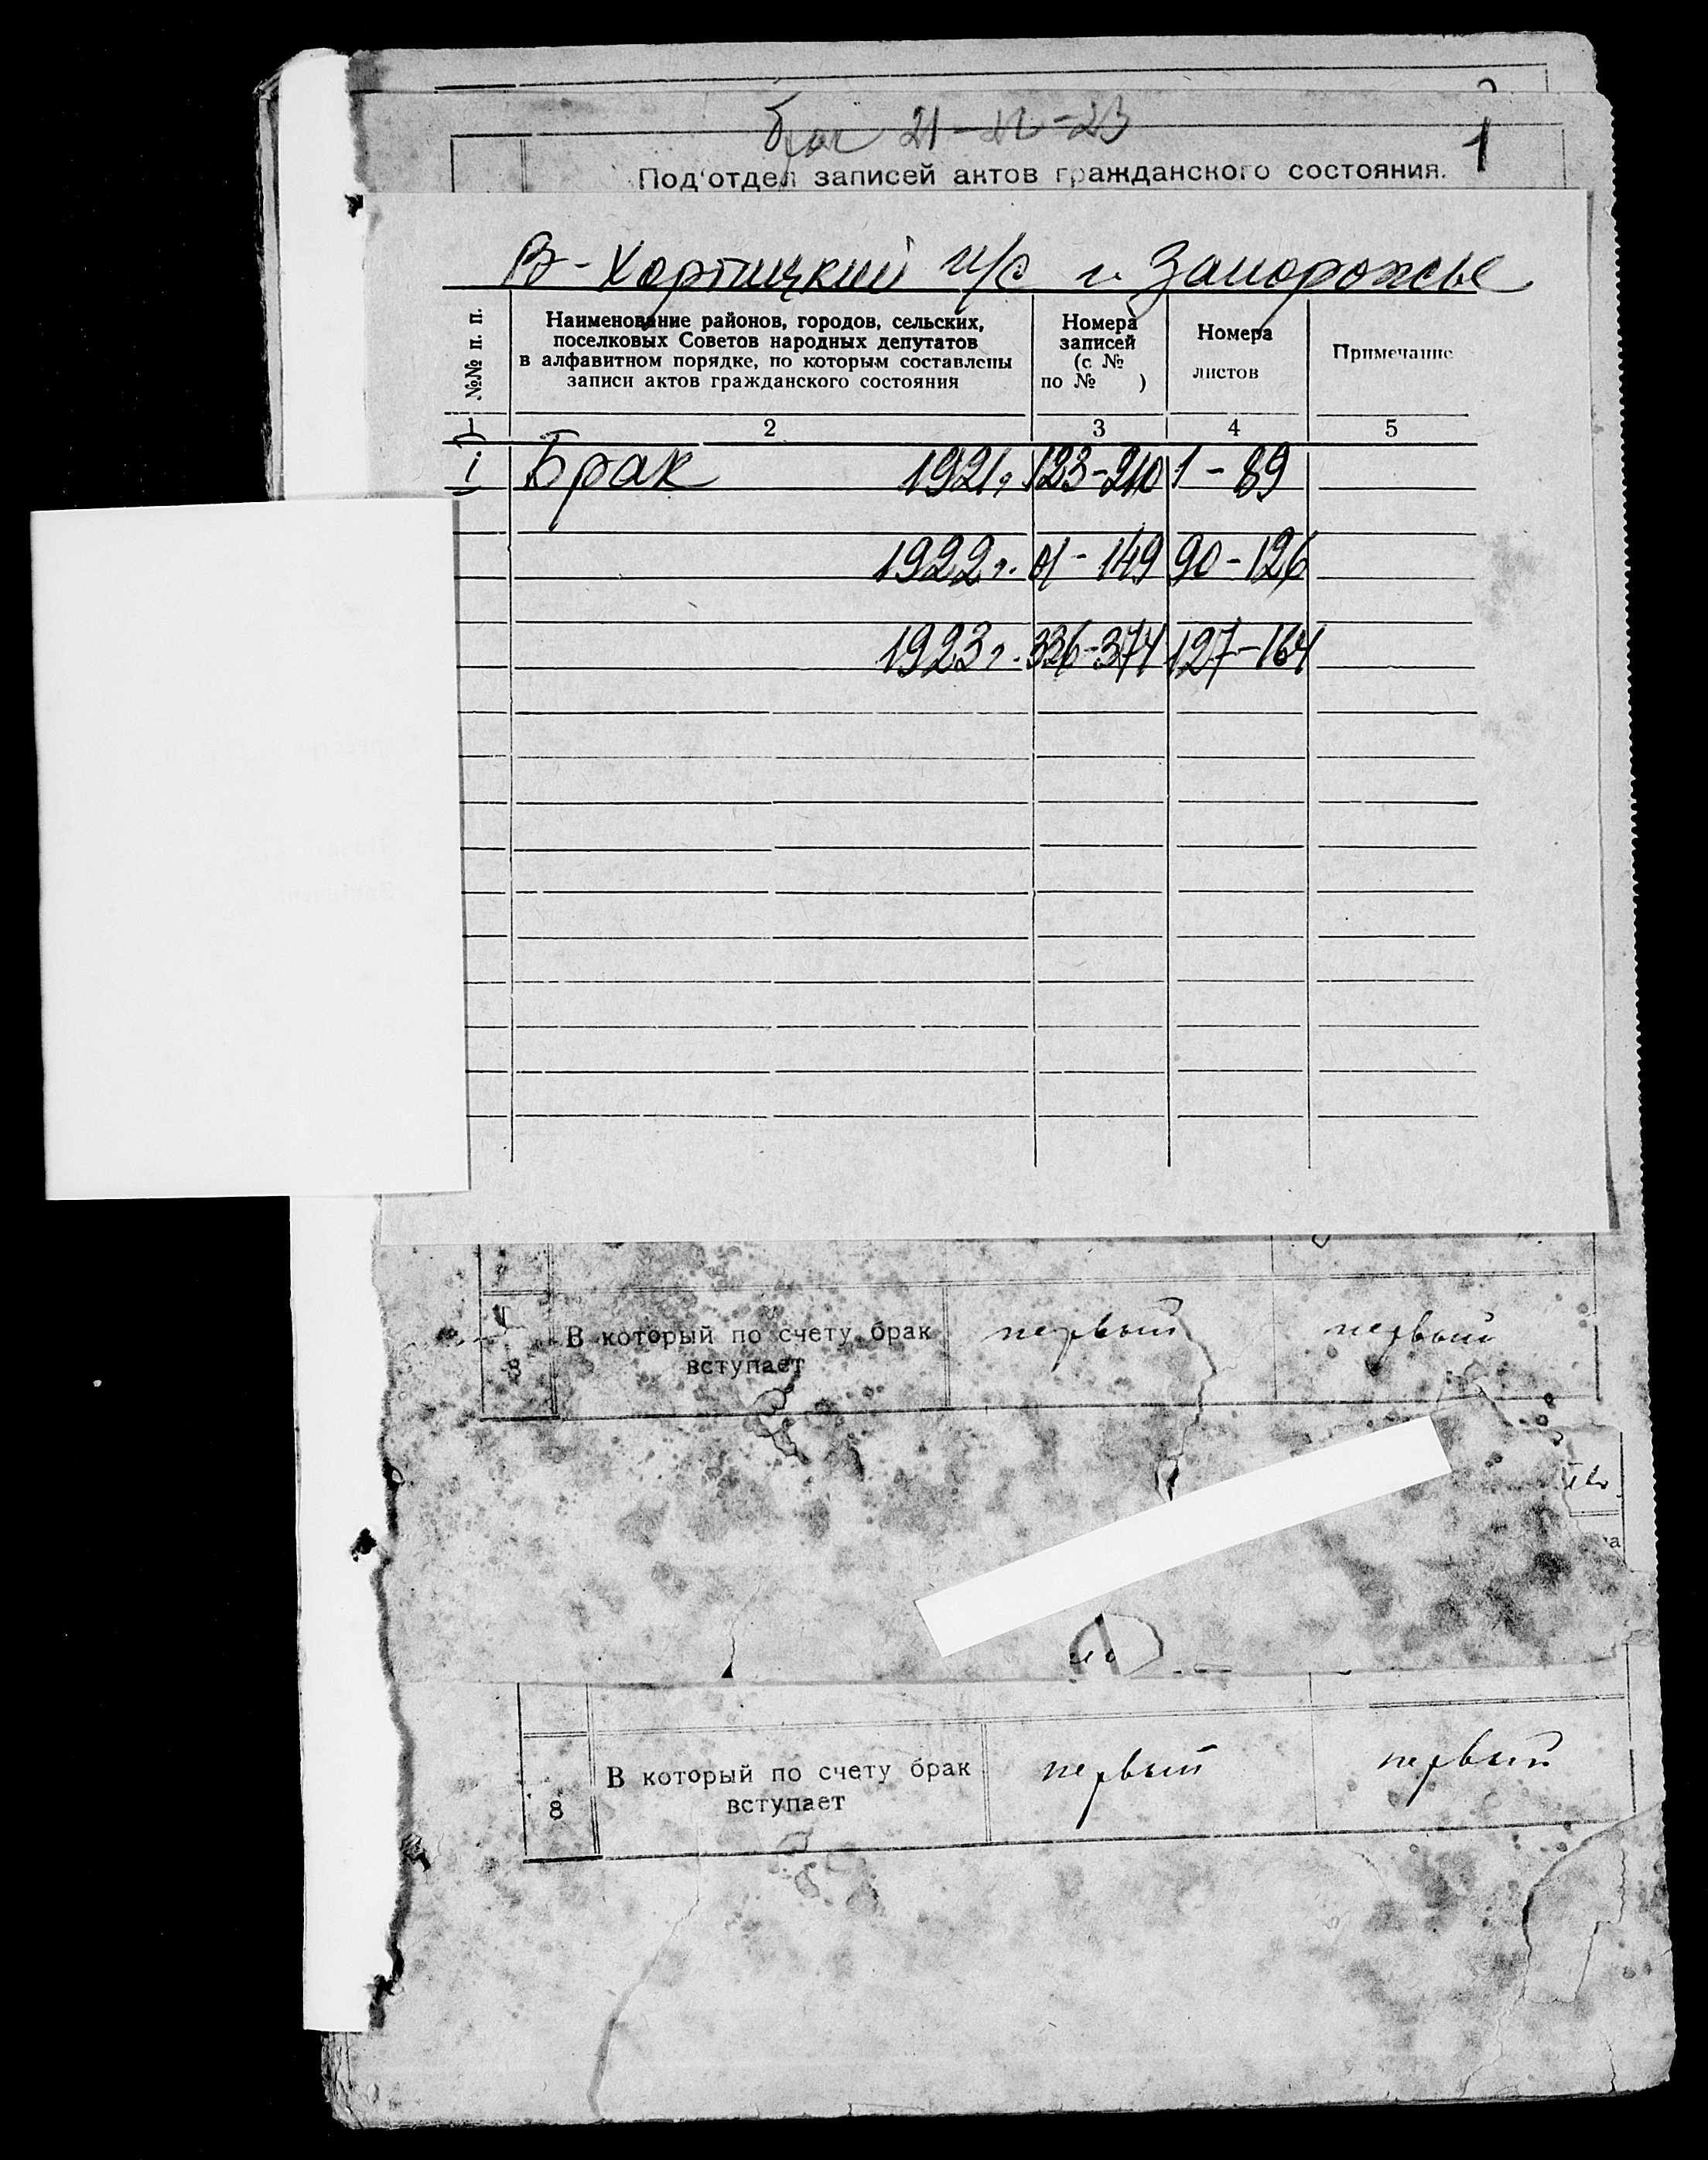 брак 21-22-23
1
Под'отдел записей актов гражданского состояния.
В-Хортицкий с/с г. Запорожье
№№ п. п.
Наименование районов, городов, сельских,
поселковых Советов народных депутатов
в алфавитном порядке, по которым составлены
записи актов гражданского состояния
Номера
записей
(с №
по № )
Номера
листов
Примечание
1 2 3 4 5
1 Брак 1921г. 123-210 1-89
1922г. 01-149 90-126
1923г. 336-374 127-164
8 В который по счету брак
вступает
первый первый
8 В который по счету брак
вступает
первый первый